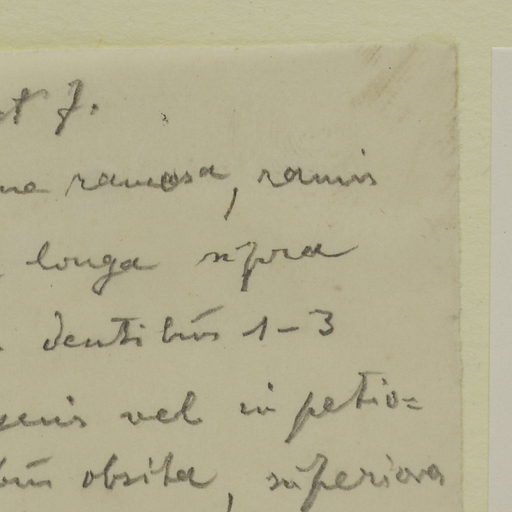 et f.
ramosa, ramis
longa supra
dentibus 1-3
vel in petio=
obsita, superiora